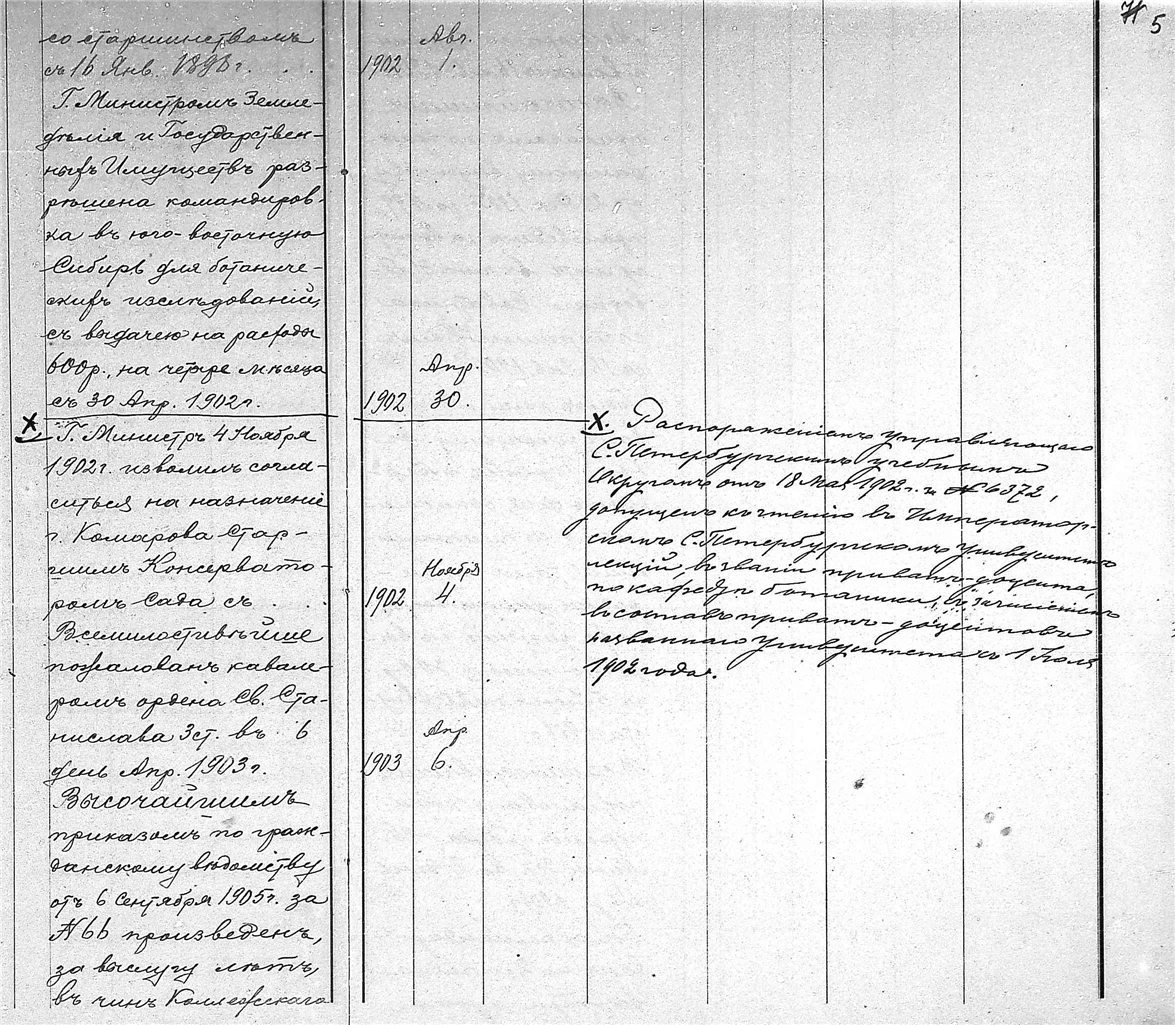 5
со старшинствомъ
съ 16 Янв. 1898 г. . .
Авг.
1902 1.
Г. Министромъ Земле-
дѣлія и Государствен-
ныхъ Имуществъ раз-
рѣшена командиров-
ка въ юго-восточную
Сибирь для ботаниче-
скихъ изслѣдованій,
съ выдачею на расходы
600 р., на четыре мѣсяца
съ 30 Апр. 1902 г.
Апр.
1902 30.
X Г. Министръ 4 Ноября
1902 г. изволилъ согла-
ситься на назначеніе
г. Комарова Стар-
шимъ Консервато-
ромъ Сада съ . . .
Ноября
1902 4.
Всемилостивѣйше
пожалованъ кавале-
ромъ ордена Св. Ста-
нислава 3 ст. въ 6
день Апр. 1903 г.
Апр.
1903 6.
Высочайшимъ
приказомъ по граж-
данскому вѣдомству
отъ 6 Сентября 1905 г. за
№ 66 произведенъ,
за выслугу лѣтъ,
въ чинъ Коллежскаго
X. Распоряженіемъ Управляющаго
С.Петербургскимъ учебнымъ
Округомъ отъ 18 Мая 1902 г. за № 6372,
допущенъ къ чтенію въ Император-
скомъ С.Петербургскомъ Университетѣ
лекцій, въ званіи приватъ-доцента,
по кафедрѣ ботаники, съ зачисленіемъ
въ составъ приватъ-доцентовъ
названнаго Университета съ 1 Іюля
1902 года.